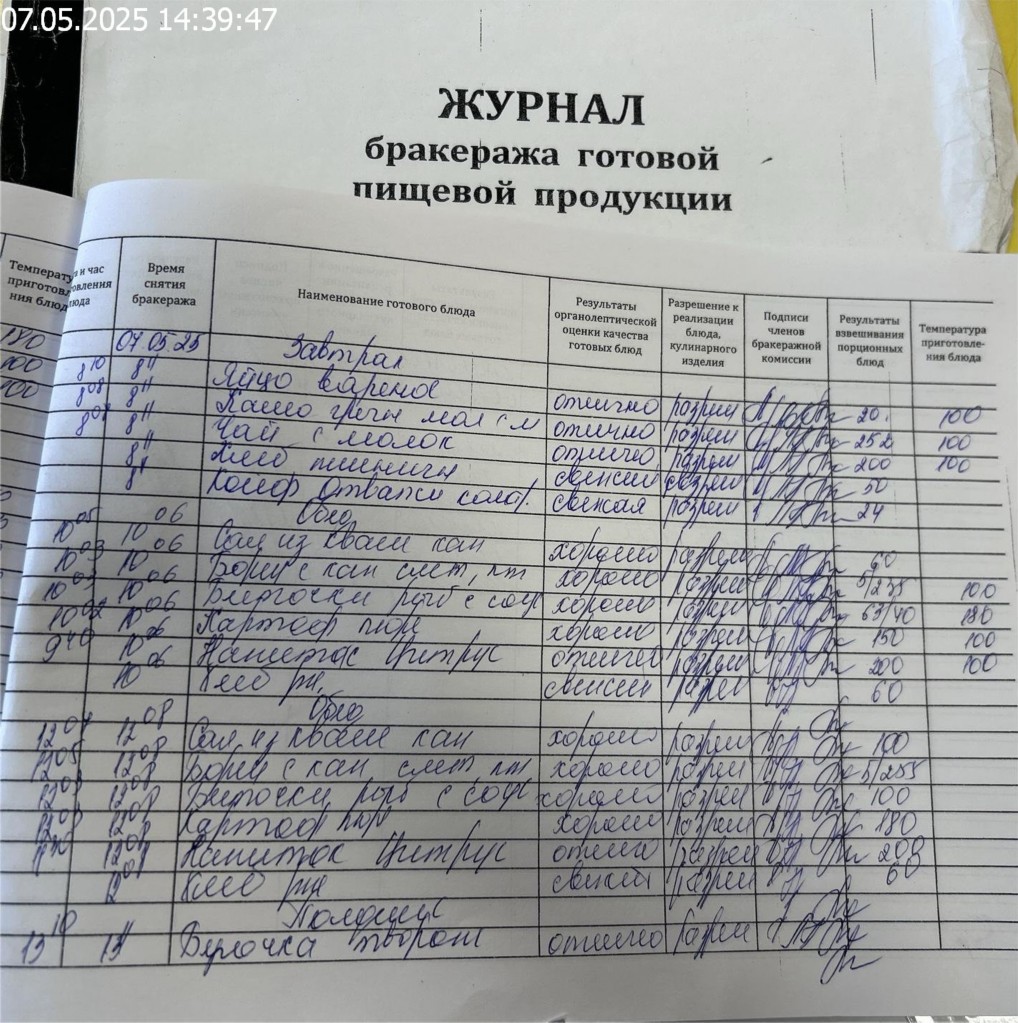 07.05.2025 14:39:47
ЖУРНАЛ
бракеража готовой
пищевой продукции
Температу
приготов
ния блюд
та и час
овления
люда
Время
снятия
бракеража
Наименование готового блюда
Результаты
органолептической
оценки качества
готовых блюд
Разрешение к
реализации
блюда,
кулинарного
изделия
Подписи
членов
бракеражной
комиссии
Результаты
взвешивания
порционных
блюд
Температура
приготовле-
ния блюда
180
07.05.25 Завтрак
100 8 10 8 11 Яйцо варенов отлично разреш 20 100
100 8 08 8 11 Каша гречн мол с м отлично разреш 252 100
8 08 8 11 Чай с молок отлично разреш 200 100
8 11 Хлеб пшеничн свежий разреш 50
8 11 свежая разреш 24
Обед
10 05 10 06 Сал из кваш кап хорошо разреш 60
10 03 10 06 Борщ с кап смет, пт хорошо разреш 5/235 100
10 03 10 06 Биточки рыб с соус хорошо разреш 63/40 180
10 02 10 06 Картоф пюре хорошо разреш 150 100
9 40 10 06 Напиток Цитрус отлично разреш 200 100
10 06 Хлеб рж. свежий разреш 60
Обед
12 04 12 08 Сал из кваш кап хорошо разреш 100
12 05 12 08 Борщ с кап смет, пт хорошо разреш 5/255
12 03 12 08 Биточки рыб с соус хорошо разреш 100
12 03 12 08 Картоф пюр хорошо разреш 180
11 30 12 08 Напиток Цитрус отлично разреш 200
12 08 Хлеб рж свежий разреш 60
Полдник
13 10 13 11 Булочка творож отлично разреш